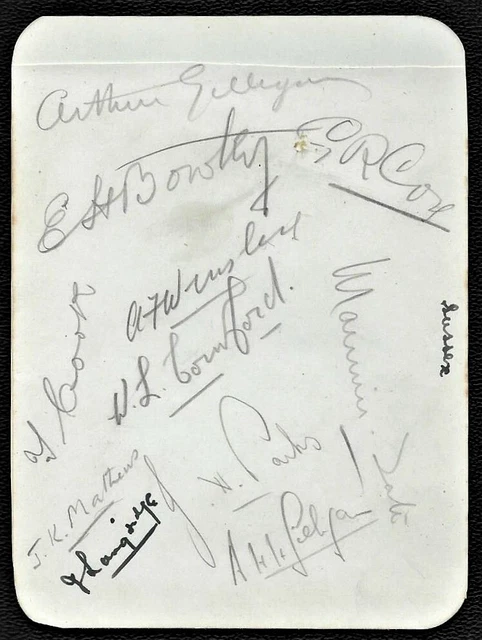 Arthur Gilligan
E H Bowley
G R Cox
A F Wensley
W. L. Cornford.
Maurice Tate
Sussex
T Cook
J. K. Mathews
J Langridge
H. Parks
A H H Gilligan